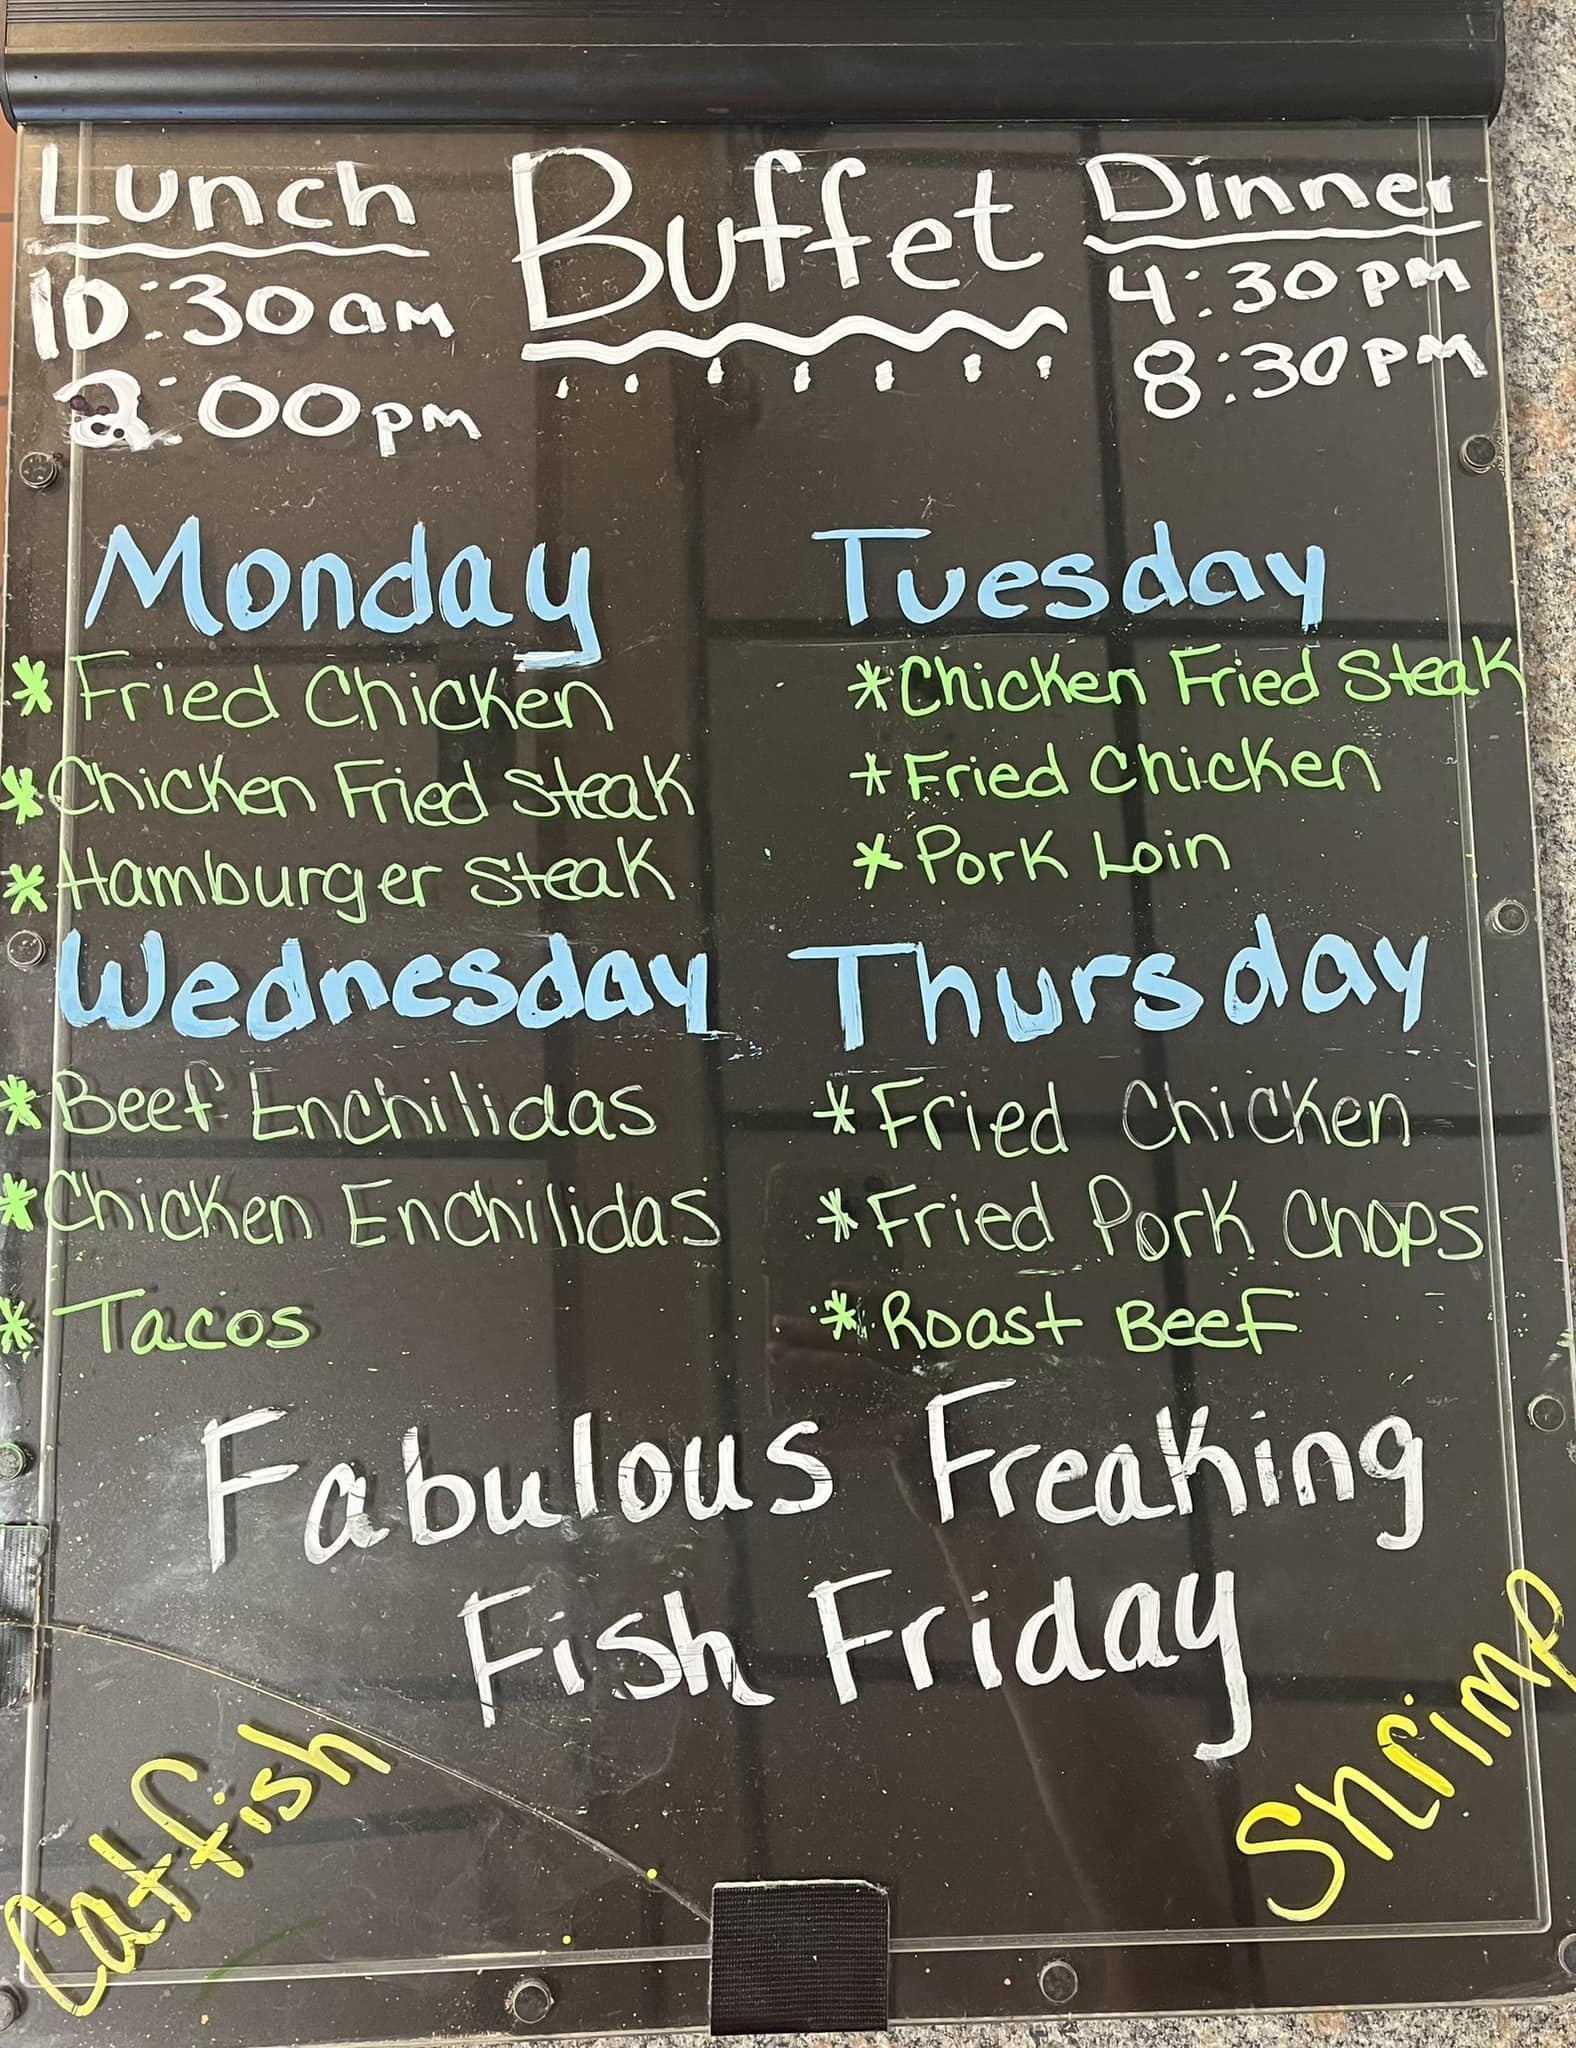 Lunch
10:30am
2:00pm
Buffet
Dinner
4:30pm
8:30pm
Monday
* Fried Chicken
* Chicken Fried Steak
* Hamburger Steak
Tuesday
* Chicken Fried Steak
* Fried Chicken
* Pork Loin
Wednesday
* Beef Enchilidas
* Chicken Enchilidas
* Tacos
Thursday
* Fried Chicken
* Fried Pork Chops
* Roast Beef
Fabulous Freaking
Fish Friday
Catfish
Shrimp